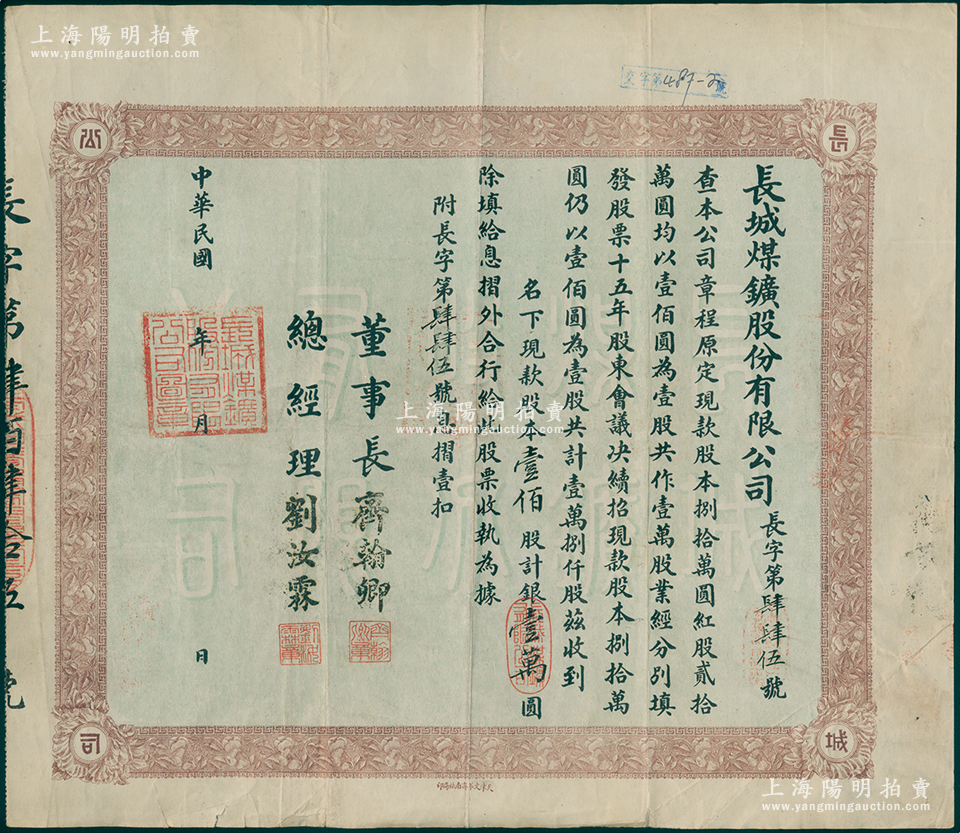 上海陽明拍賣
www.yangmingauction.com
交字第487-2號
長
城
公
司
長城煤鑛股份有限公司 長字第肆肆伍號
查本公司章程原定現款股本捌拾萬圓紅股貳拾
萬圓均以壹佰圓為壹股共作壹萬股業經分別填
發股票十五年股東會議决續招現款股本捌拾萬
圓仍以壹佰圓為壹股共計壹萬捌仟股茲收到
名下現款股本壹佰股計銀壹萬圓
除填給息摺外合行給此股票收執為據
附長字第肆肆伍號息摺壹扣
董事長齊翰卿
總經理劉汝霖
中華民國 年 月 日
長城煤鑛股份有限公司圖章
長字第肆百肆拾伍號
上海陽明拍賣
www.yangmingauction.com
上海陽明拍賣
www.yangmingauction.com